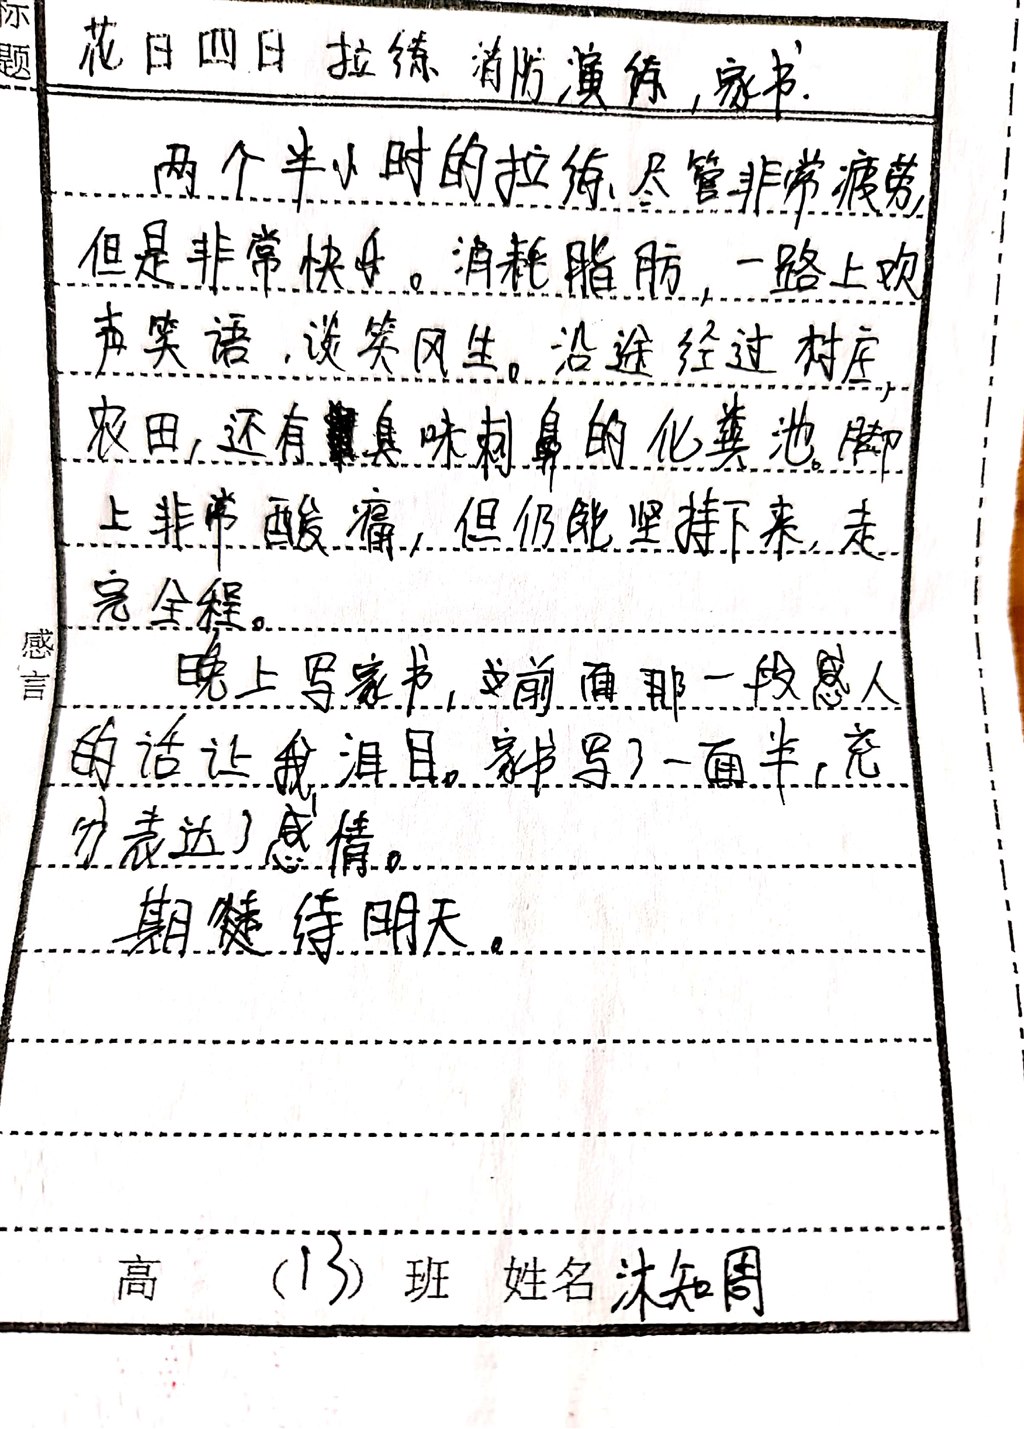 标题
花日四日 拉练 消防演练，家书.
两个半小时的拉练、尽管非常疲劳,
但是非常快乐。消耗脂肪，一路上欢
声笑语，谈笑风生。沿途经过村庄,
农田，还有臭味刺鼻的化粪池。脚
上非常酸痛，但仍能坚持下来，走
完全程。
感言
晚上写家书，前面那一段感人
的话让我泪目。家书写了一面半，充
分表达了感情。
期待明天。
高 （13）班 姓名 沐知周